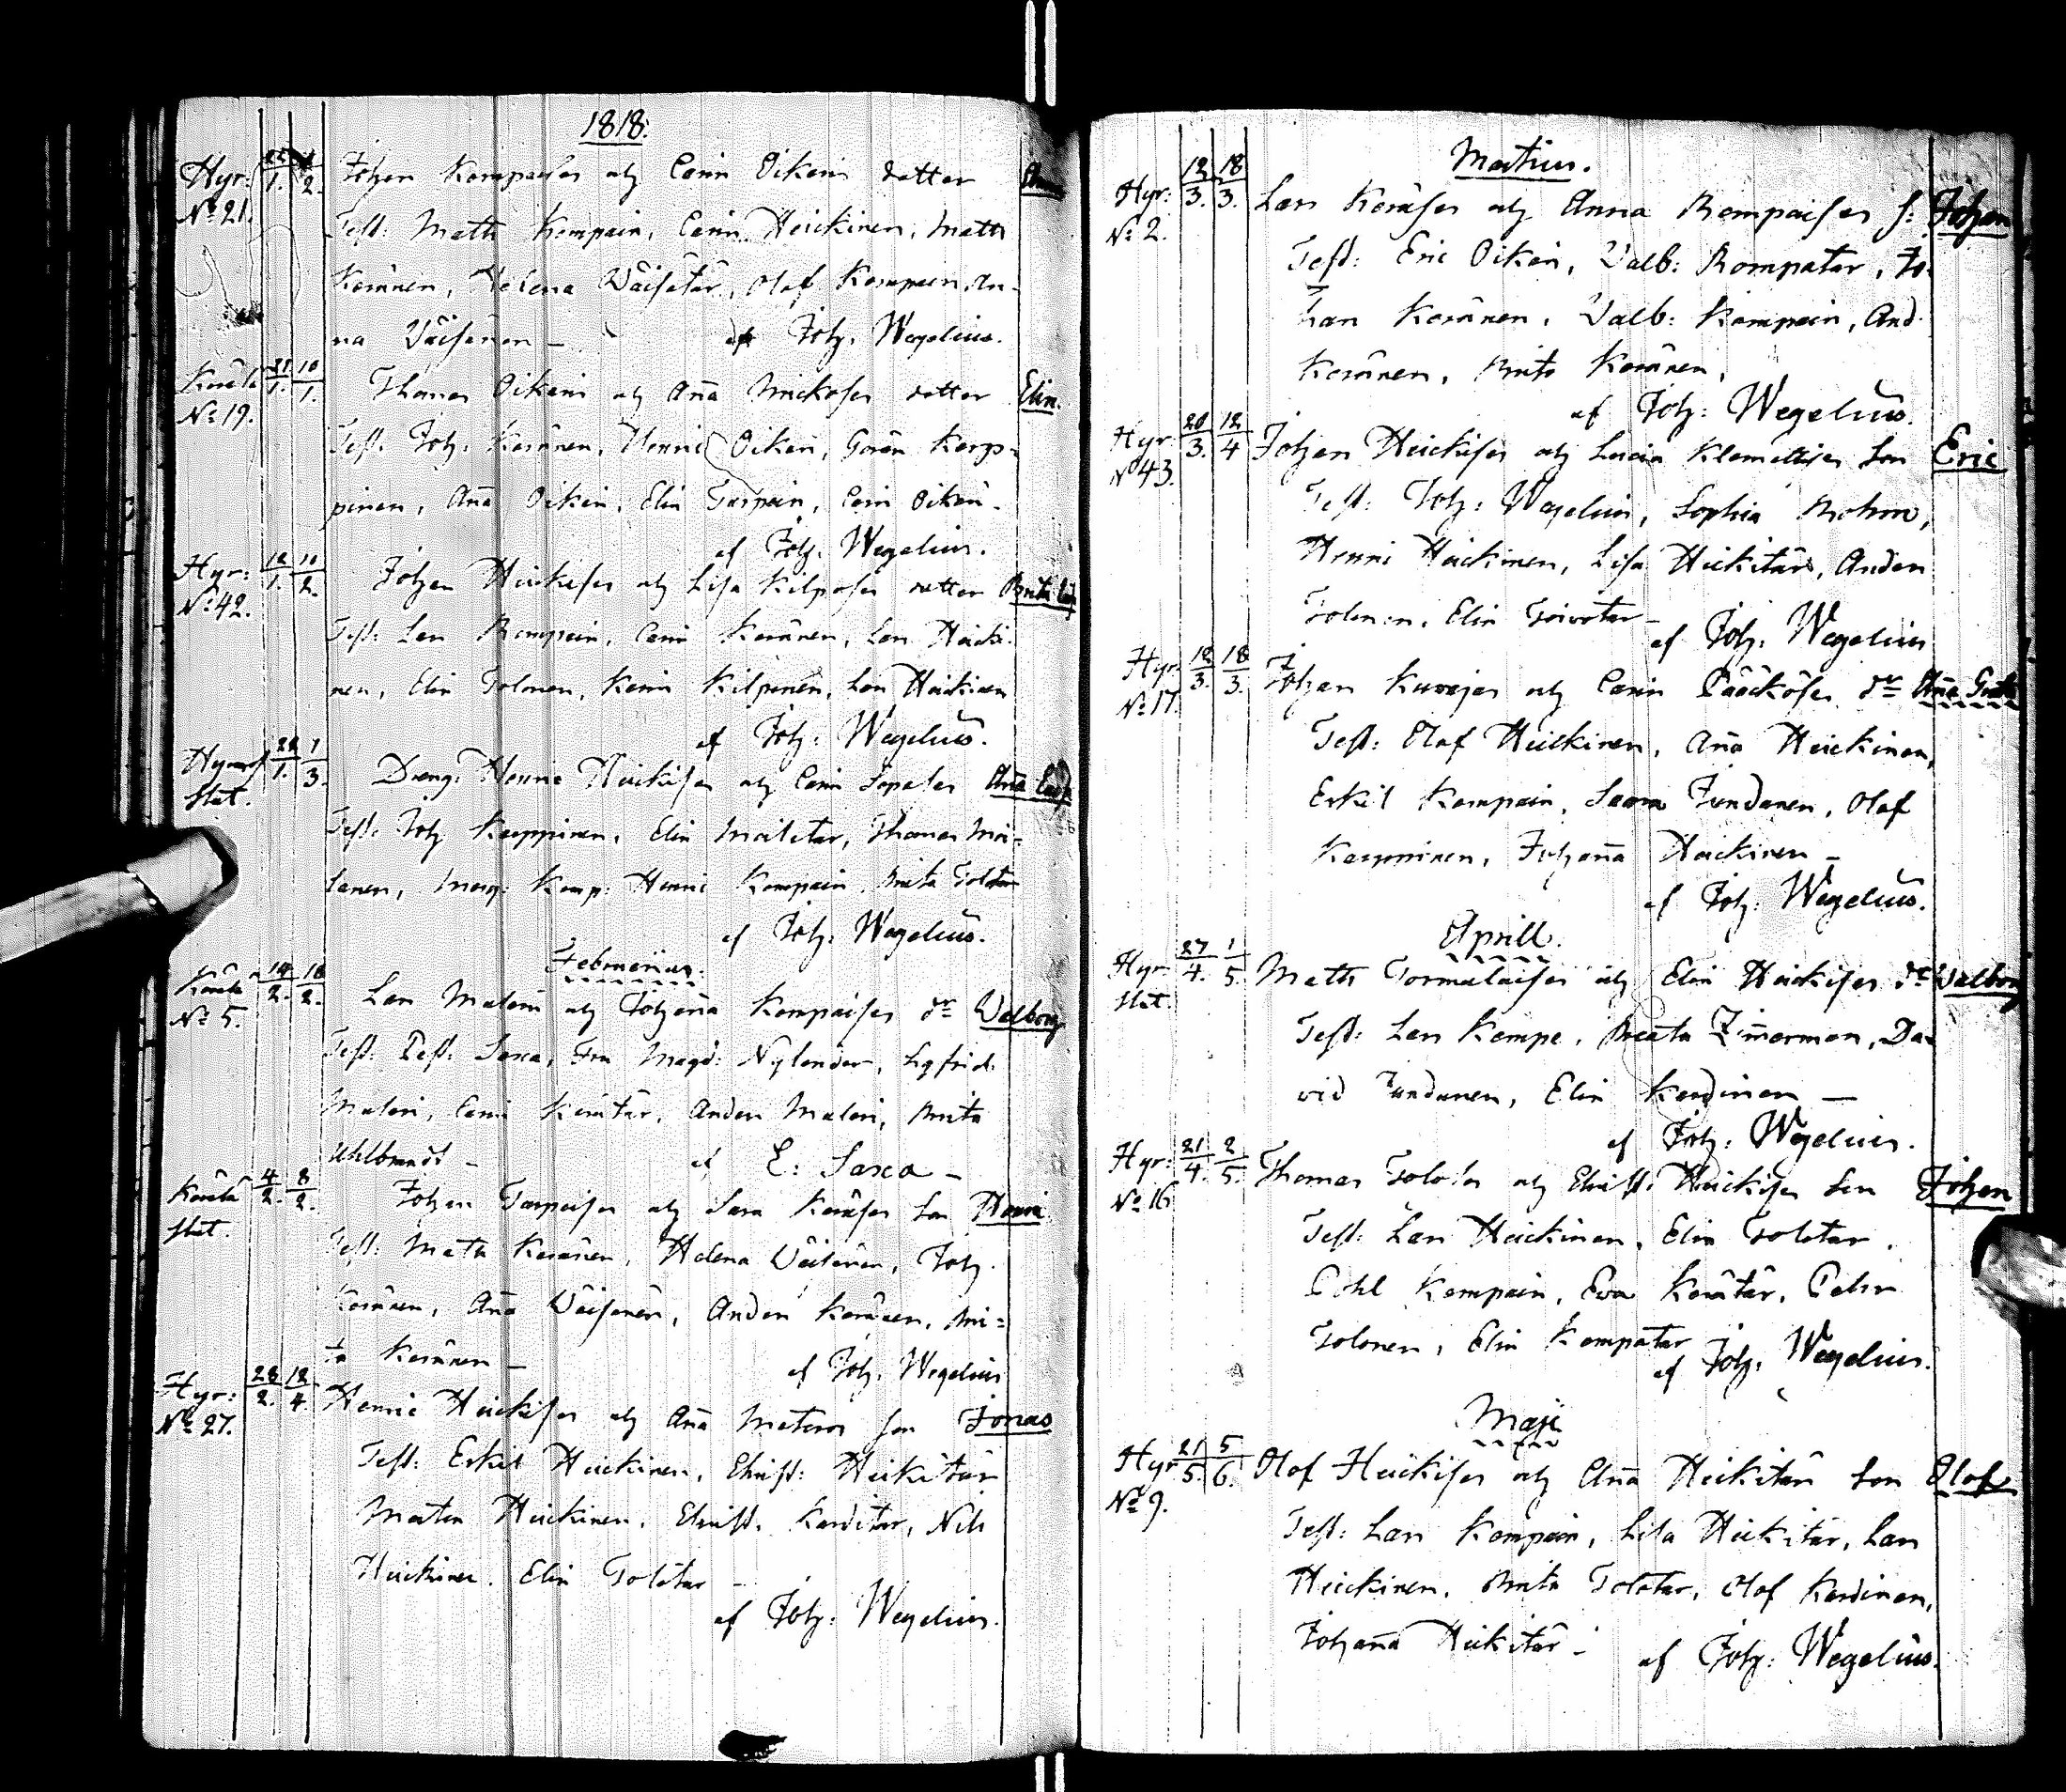 1818.
Hyr: 1. 2. Johan Kempaisen och Carin Oikari dotter
No 21. Test: Matts Kempain, Carin Heickinen, Matts
Keränen, Helena Väisetär, Olof Kempain, An-
na Väisenen — af Joh. Wegelius.
21/1. 10/1. Thomas Oikari och Aña dotter Elin.
No 19. Test: Joh: Keränen, Henric Oikari, Göran Karp-
pinen, Aña Oikari, Elin Tarpain, Carin Oikari.
af Joh. Wegelius.
Hyr: 12/1. 10/2. Johan Heickisen och Lisa Kilposen dotter Brita
No 42. Test: Lars Kempain, Carin Keränen, Lars Heicki-
nen, Elin Tolonen, Karin Kilpenen, Lars Heickinen
af Joh: Wegelius.
1. 1/3. Dreng: Henric Heickisen och Carin Aña
Stat. Test: Joh Karppinen, Elin Moiletar, Thomas Moi-
lanen, Henric Kempain, Brita
af Joh: Wegelius.
Februarius.
14/2. 18/2. Lars Malari och Johaña Kempaisen dr Walborg
No 5. Test: Past: Saxa, Fru Magd: Nylander, Sigfrid
Malari, Carin Kerätär, Anders Malari, Brita
Uhlbrandt — af E: Saxa —
4/2. 8/2. Johan Tarpaisen och Sara Keräsen son Henric
Stat. Test: Matts Keränen, Helena Väisenen, Joh.
Keränen, Aña Väisenen, Anders Keränen, Bri-
ta Keränen — af Joh. Wegelius
Hyr: 28/2. 12/4. Henric Heickisen och Aña son Jonas
No 27. Test: Erkel Heickinen, Christ: Heikitär
Morten Heickinen, Christ. Karditar, Nils
Heickinen. Elin Tolotar —
af Joh: Wegelius.
Martius.
Hyr: 12/3. 18/3. Lars Keräsen och Anna Kempaisen s: Johan
No 2. Test: Eric Oikari, Valb: Kempatar, Jo-
han Keränen, Valb: Kempain, And.
Keränen, Brita Keränen,
af Joh: Wegelius.
Hyr 20/3. 12/4 Johan Heickisen och Lucia Klemettisen son Eric
No 43. Test: Joh: Wegelius, Sophia
Henric Heickinen, Lisa Heickitär, Anders
Tolonen, Elin —
af Joh: Wegelius
Hyr: 12/3. 18/3. Johan och Carin Pääckösen dr
No 17. Test: Olof Heickinen, Aña Heickinen,
Erkel Kempain, Saara Jundanen, Olof
Karppinen, Johaña Heickinen —
af Joh: Wegelius.
Aprill.
Hyr: 27/4. 1/5. Matts Tormulaisen och Elin Heickisen dr Walborg
Stat. Test: Lars Kempe, Beata Zimerman, Da-
vid Jundunen, Elin Kardinen —
af Joh: Wegelius.
Hyr: 21/4. 2/5. Thomas och Christ: Heickisen son Johan
No 16 Test: Lars Heickinen, Elin Tolotar,
Pohl Kempain, Eva Kerätär, Pehr
Tolonen, Elin Kempatar
af Joh. Wegelius.
Maji
Hyr 21/5. 5/6. Olof Heickisen och Aña Heickitär son Olof
No 9. Test: Lars Kempain, Lisa Heickitär, Lars
Heickinen, Brita Tolotar, Olof Kardinen,
Johaña Heickitär — af Joh: Wegelius.